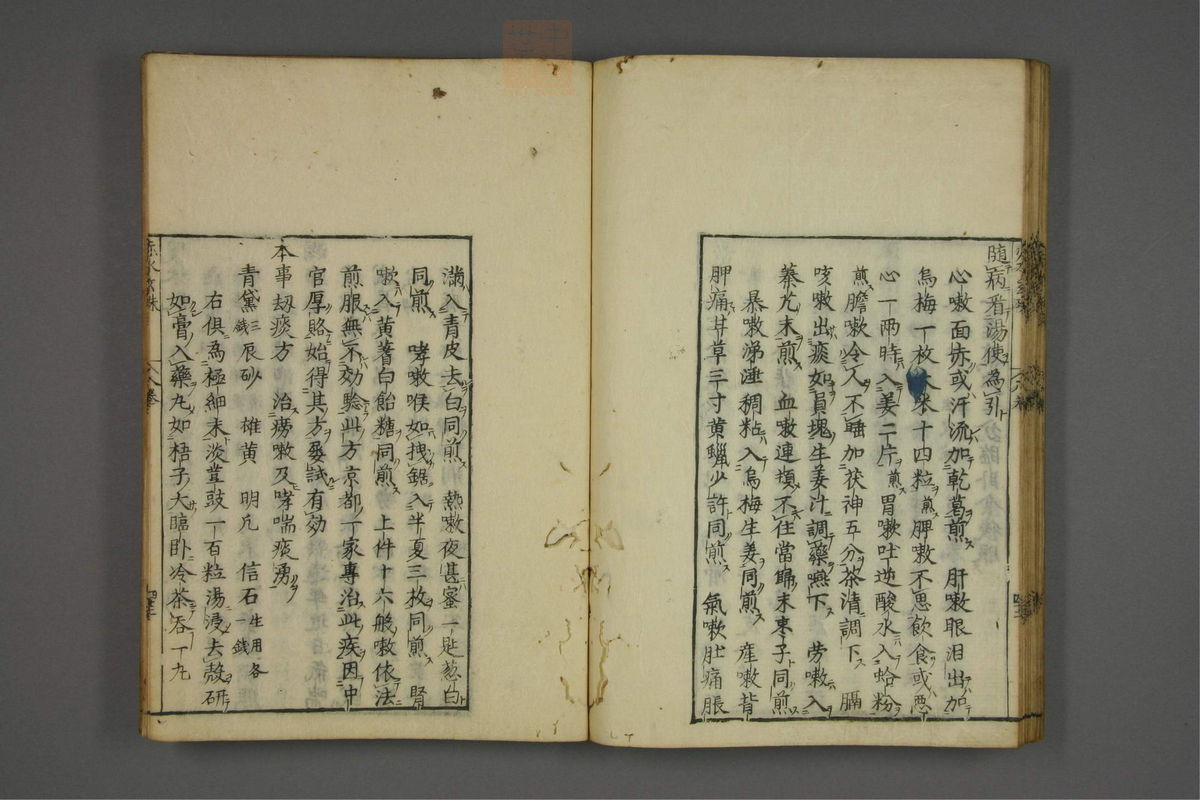 随病看湯使為引
心嗽面赤或汗流加乾葛煎　肝嗽眼泪出加
烏梅一枚　米十四粒煎　脾嗽不思飲食或惡
心一兩時入姜二片煎　胃嗽吐逆酸水入蛤粉
煎　膽嗽令人不睡加茯神五分茶清調下　膈
咳嗽出痰如員塊生姜汁調藥嚥下　劳嗽入
蓁尤末煎　血嗽連頓不住當歸末枣子同煎
暴嗽涕唾稠粘入烏梅生姜同煎　産嗽背
胛痛甘草三寸黄蠟少許同煎　氣嗽肚痛脹
滿入青皮去白同煎　熱嗽夜甚蜜一匙葱白
同煎　哮嗽喉如拽鋸入半夏三枚同煎　腎
嗽入黄蓍白飴糖同煎　上件十六般嗽依法
煎服無不効驗此方京都一家專治此疾因中
官厚賂始得其方屡試有効
本事刧痰方　治痨嗽及哮喘痰湧
青黛三錢　辰砂　雄黄　明凡　信石生用各一錢
右俱為極細末淡荳豉一百粒湯浸去殼研
如膏入藥丸如梧子大臨卧冷茶吞一丸